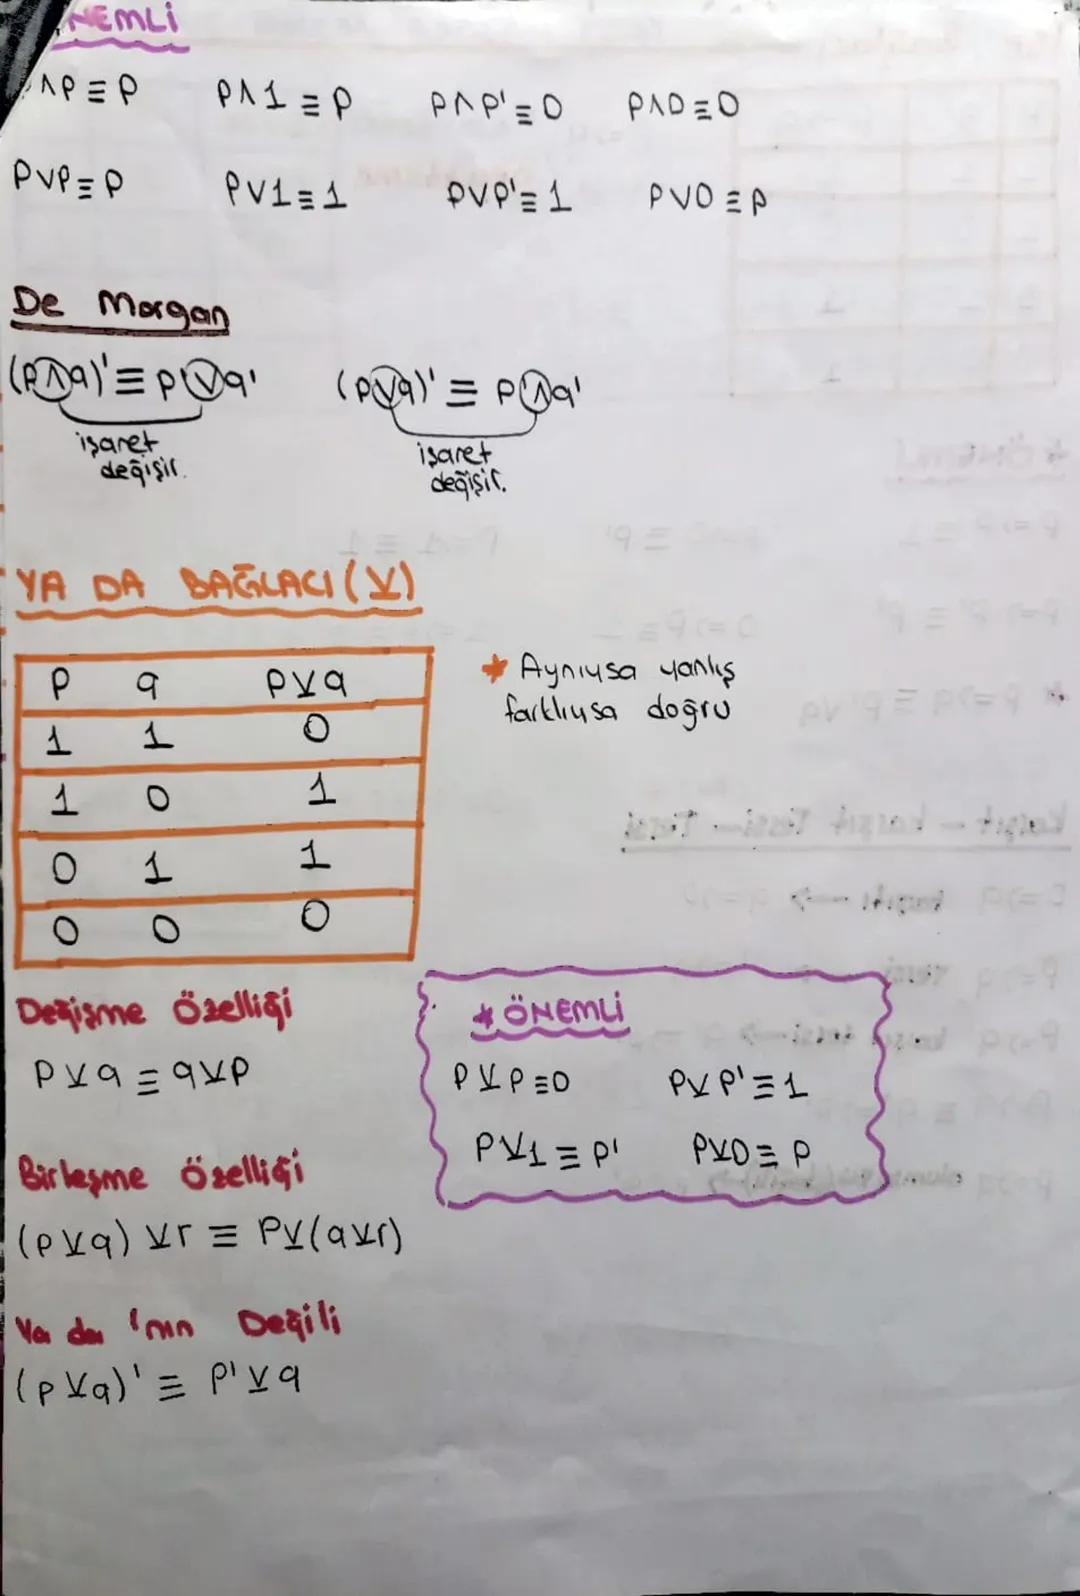 NEMLİ
∧P≡P P∧1≡P P∧P'≡0 P∧0≡0
P∨P≡P P∨1≡1 P∨P'≡1 P∨0≡P
De Morgan
(P∧q)'≡P'∨q' (P∨q)'≡P∧q'
işaret değişir. işaret değişir.
YA DA BAĞLACI (⊻)
P q P⊻q
1 1 0
1 0 1
0 1 1
0 0 0
* Aynıysa yanlış
farklıysa doğru
Değişme Özelliği
P⊻q≡q⊻P
Birleşme Özelliği
(P⊻q)⊻r≡P⊻(q⊻r)
Ya da 'nın Değili
(P⊻q)'≡P'⊻q
* ÖNEMLİ
P⊻P≡0 P⊻P'≡1
P⊻1≡P' P⊻0≡P